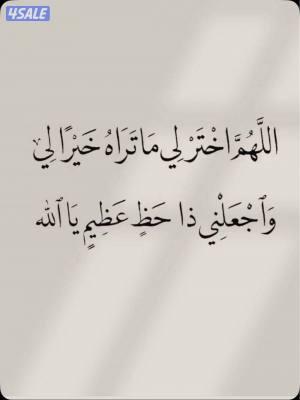 4SALE
اللَّهُمَّ اخْتَرْ لِي مَا تَرَاهُ خَيْرًا لِي
وَٱجْعَلْنِي ذا حَظٍ عَظِيمٍ يَا ٱللّٰه